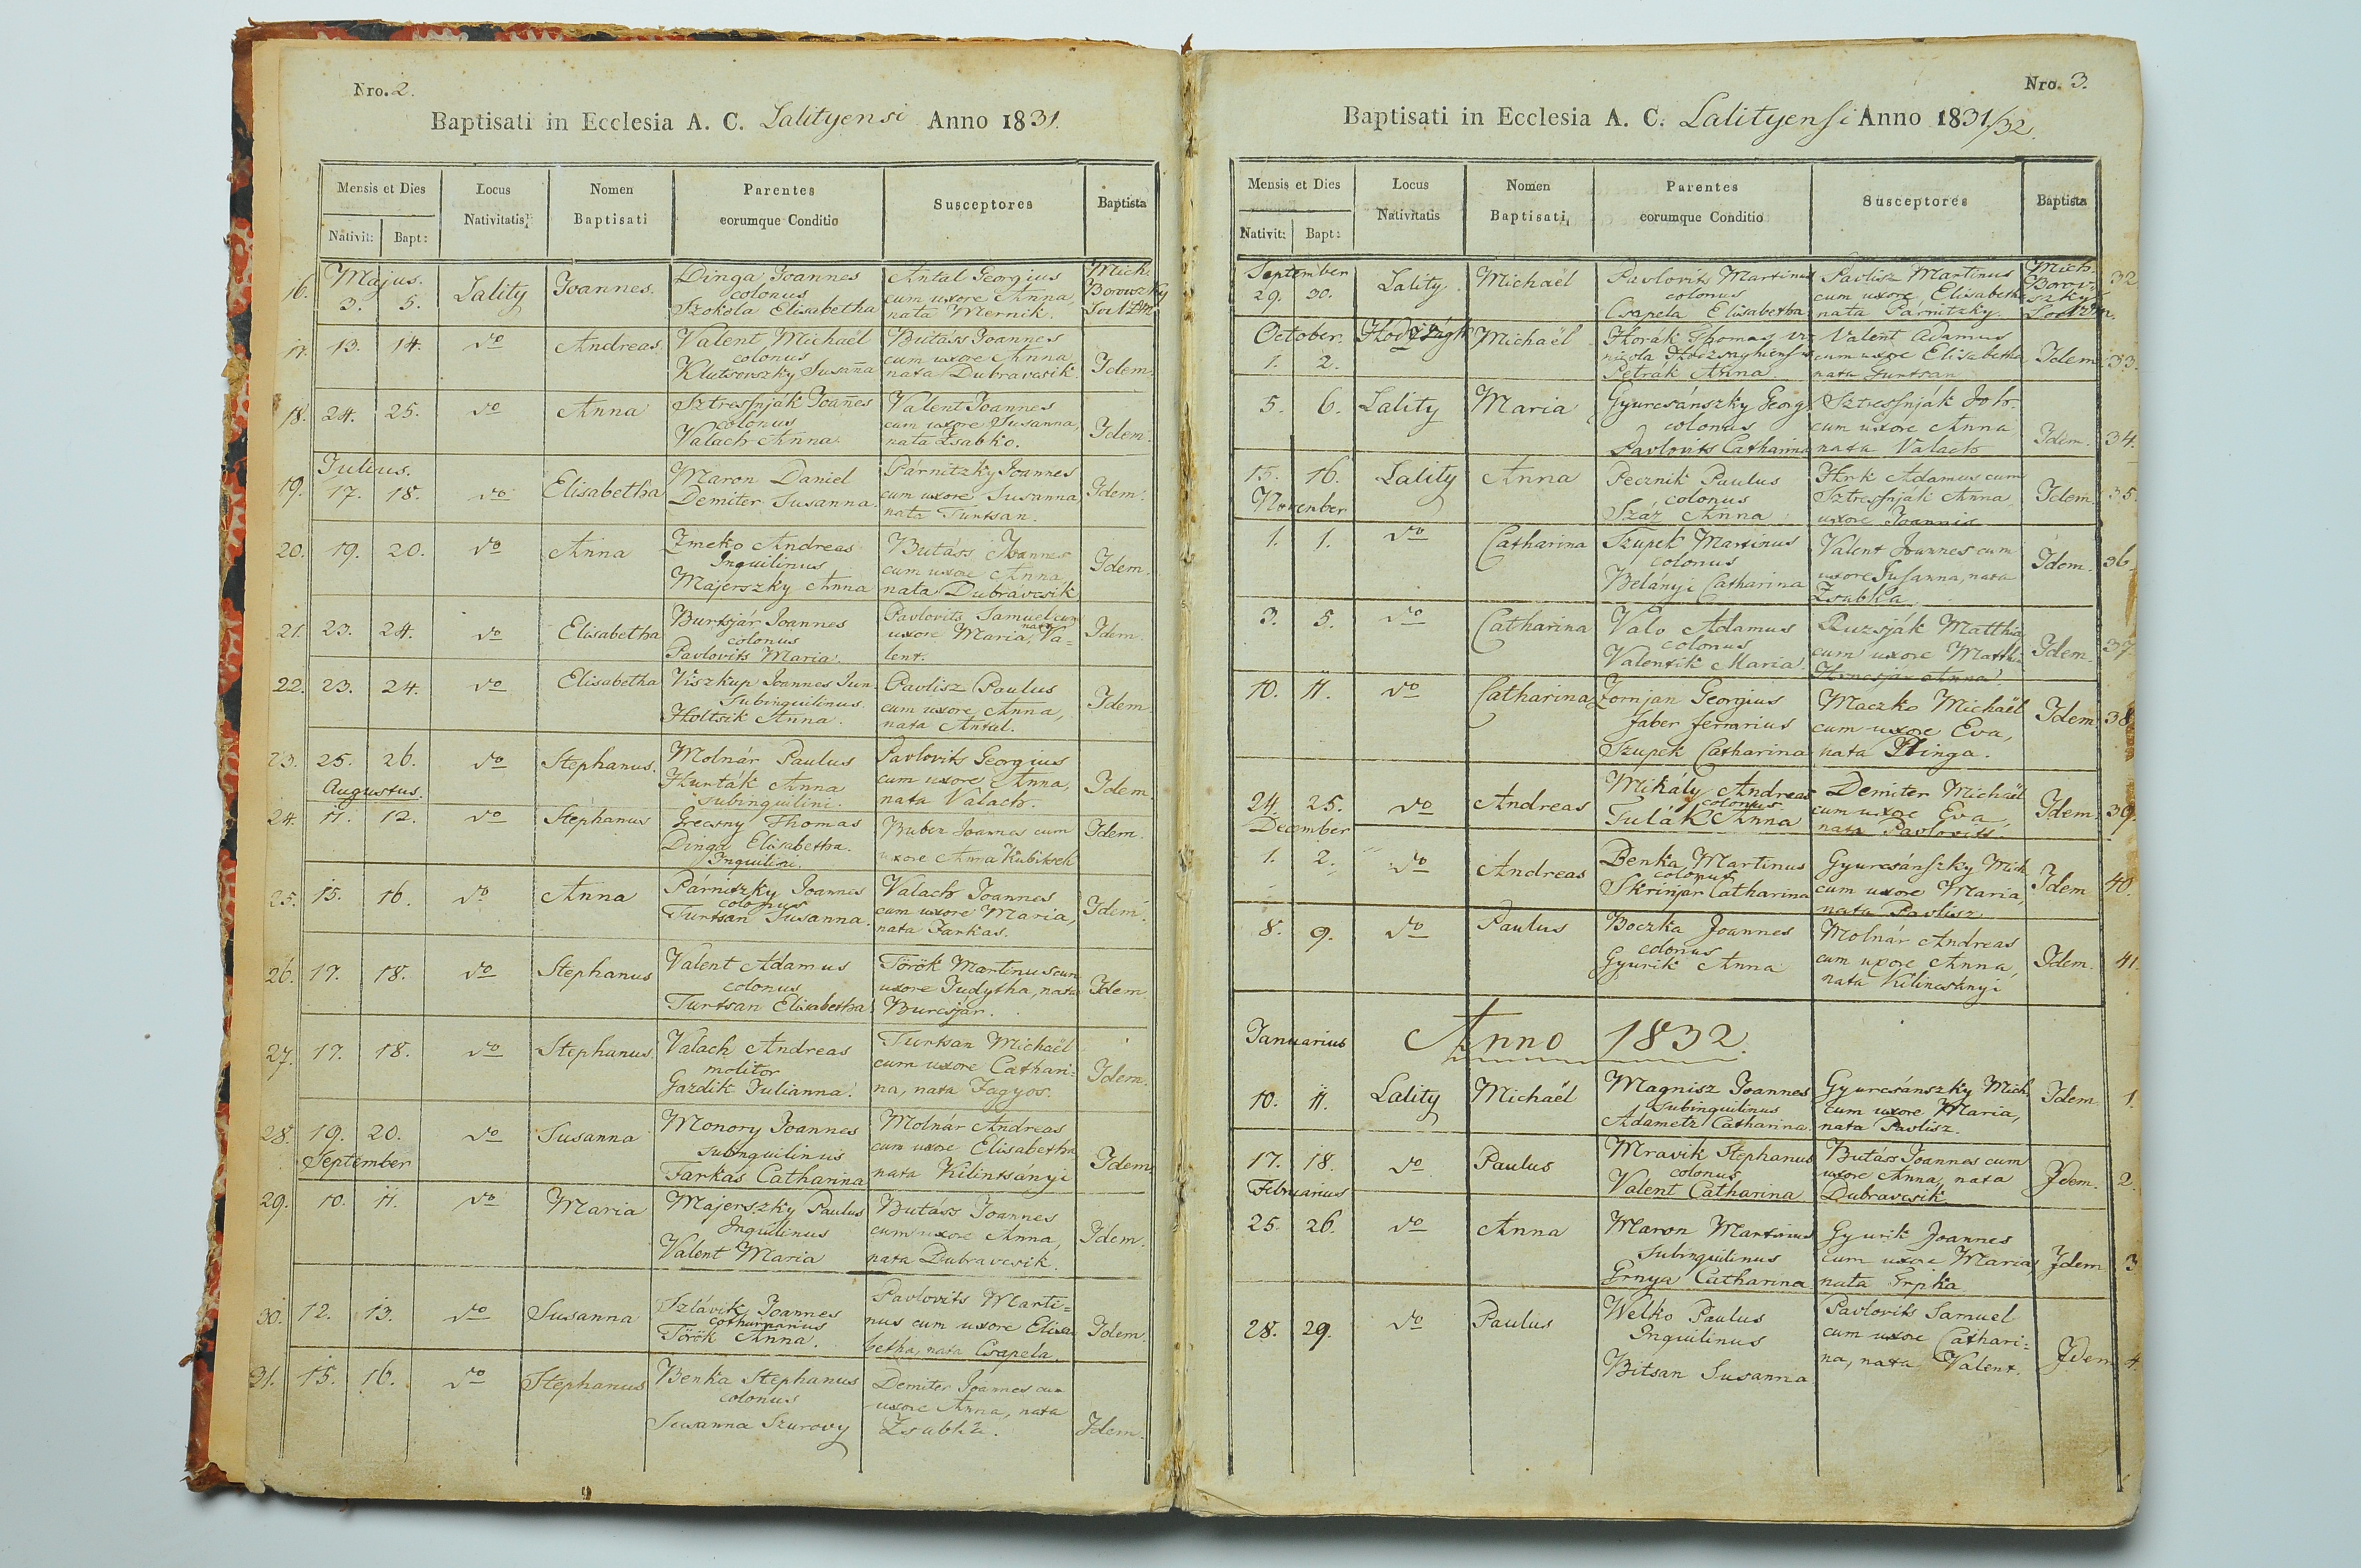 Nro. 2.
Baptisati in Ecclesia A. C. Lalityensi Anno 1831.
Mensis et Dies Locus Nativitatis Nomen Baptisati Parentes eorumque Conditio Susceptores Baptista
Nativit: Bapt:
Majus.
16. 3. 5. Lality Joannes. Dinga Joannes colonus Szokola Elisabetha Antal Georgius cum uxore Anna, nata Mernik. Mich. Borovszky
17. 13. 14. do Andreas. Valent Michaël colonus Klutsovszky Susana Butáss Joannes cum uxore Anna nata Dubravcsik. Idem.
18. 24. 25. do Anna Sztressnják Joanes colonus Valach Anna. Valent Joannes cum uxore Susanna, nata Zsabko. Idem.
Julius.
19. 17. 18. do Elisabetha Maron Daniel Demiter Susanna. Párnitzky Joannes cum uxore Susanna nata Turtsan. Idem.
20. 19. 20. do Anna Zmeko Andreas Inquilinus Majerszky Anna Butáss Joannes cum uxore Anna, nata Dubravcsik Idem.
21. 23. 24. do Elisabetha Burtsjár Joannes colonus Pavlovits Maria. Pavlovits Samuel cum uxore Maria, nata Va= lent. Idem.
22. 23. 24. do Elisabetha Viszkup Joannes Jun. Subinquilinus. Holtsik Anna. Pavlisz Paulus cum uxore Anna, nata Antal. Idem.
23. 25. 26. do Stephanus. Molnár Paulus Hurták Anna subinquilini. Pavlovits Georgius cum uxore Anna, nata Valach. Idem.
Augustus.
24. 11. 12. do Stephanus Grecsny Thomas Dinga Elisabetha. Inquilini. Buber Joannes cum uxore Anna Kubitseh Idem.
25. 15. 16. do Anna Párniszky Joannes colonus Turtsan Susanna. Valach Joannes cum uxore Maria, nata Farkas. Idem.
26. 17. 18. do Stephanus Valent Adamus colonus Turtsan Elisabetha Török Martinus cum uxore Judytha, nata Burcsjar. Idem
27. 17. 18. do Stephanus. Valach Andreas molitor Gazdik Julianna. Turtsan Michaël cum uxore Cathari= na, nata Fagyos. Idem.
28. 19. 20. do Susanna Monory Joannes subinquilinus Farkas Catharina Molnár Andreas cum uxore Elisabetha nata Kilintsányi Idem
September
29. 10. 11. do Maria Majerszky Paulus Inquilinus Valent Maria Butáss Joannes cum uxore Anna, nata Dubravcsik. Idem.
30. 12. 13. do Susanna Szlávik Joannes cothurnarius Török Anna. Pavlovits Marti= nus cum uxore Elisa betha, nata Csapela. Idem.
31. 15. 16. do Stephanus Benka Stephanus colonus Susanna Szurovy Demiter Joannes cum uxore Anna, nata Idem.
Nro. 3.
Baptisati in Ecclesia A. C. Lalityensi Anno 1831/32.
Mensis et Dies Locus Nativitatis Nomen Baptisati Parentes eorumque Conditio Susceptores Baptista
Nativit: Bapt:
September
29. 30. Lality Michaël Pavlovits Martinus colonus Csapela Elisabetha Pavlisz Martinus cum uxore, Elisabetha nata Parnitzky. Mich. Borov= szky 32
October.
1. 2. Michaël Horák Thomas Petrák Anna. Valent Adamus cum uxore Elisabetha nata Turtsan Idem 33.
5. 6. Lality Maria Gyurcsánszky Georg. colonus Pavlovits Catharina Sztressnják Joh. cum uxore Anna nata Valach Idem. 34.
15. 16. Lality Anna Pecznik Paulus colonus Száz Anna Hrk Adamus cum Sztressnják Anna, uxore Joannis Idem. 35.
November
1. 1. do Catharina Szupek Martinus colonus Belányi Catharina Valent Joannes cum uxore Susanna, nata Zsabka. Idem. 36
3. 5. do Catharina Valo Adamus colonus Valentik Maria. Ruzsják Matthia cum uxore Idem. 37
10. 11. do Catharina Zomjan Georgius faber ferrarius Szupek Catharina Maczko Michaël cum uxore Eva, nata Dinga. Idem. 38
24. 25. do Andreas Mikály Andreas colonus Tulák Anna Demiter Michaël cum uxore Eva, nata Pavlovits. Idem. 39.
December
1. 2. do Andreas Benka Martinus colonus Skrinjar Catharina Gyurcsánszky Mich cum uxore Maria, nata Pavlisz Idem 40.
8. 9. do Paulus Boczka Joannes colonus Gyurik Anna Molnár Andreas cum uxore Anna, nata Kilincsányi Idem. 41.
Januarius Anno 1832.
10. 11. Lality Michaël Magnisz Joannes subinquilinus Adametz Catharina. Gyurcsánszky Mich cum uxore Maria, nata Pavlisz. Idem 1.
17. 18. do Paulus Mravik Stephanus colonus Valent Catharina Butáss Joannes cum uxore Anna, nata Dubravcsik Idem. 2.
Februarius
25. 26. do Anna Maron Martinus subinquilinus Grnya Catharina Gyurik Joannes cum uxore Maria, nata Trpka Idem 3
28. 29. do Paulus Welko Paulus Inquilinus Bitsan Susanna Pavlovits Samuel cum uxore Cathari= na, nata Valent. Idem 4.